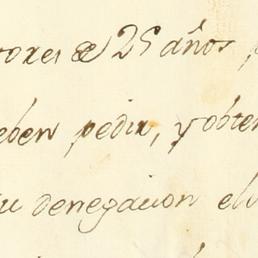 ores de 25 años
eben pedir, y obten
su denegacion el